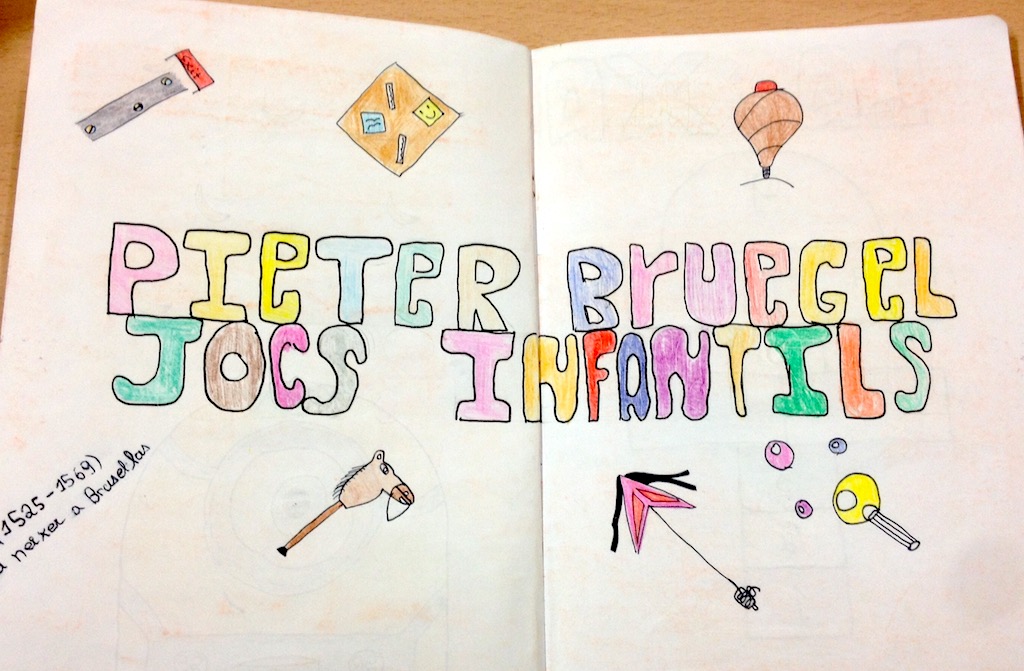 Exit
PIETER BRUEGEL
JOCS INFANTILS
(1525-1569)
neixer a Bruselas